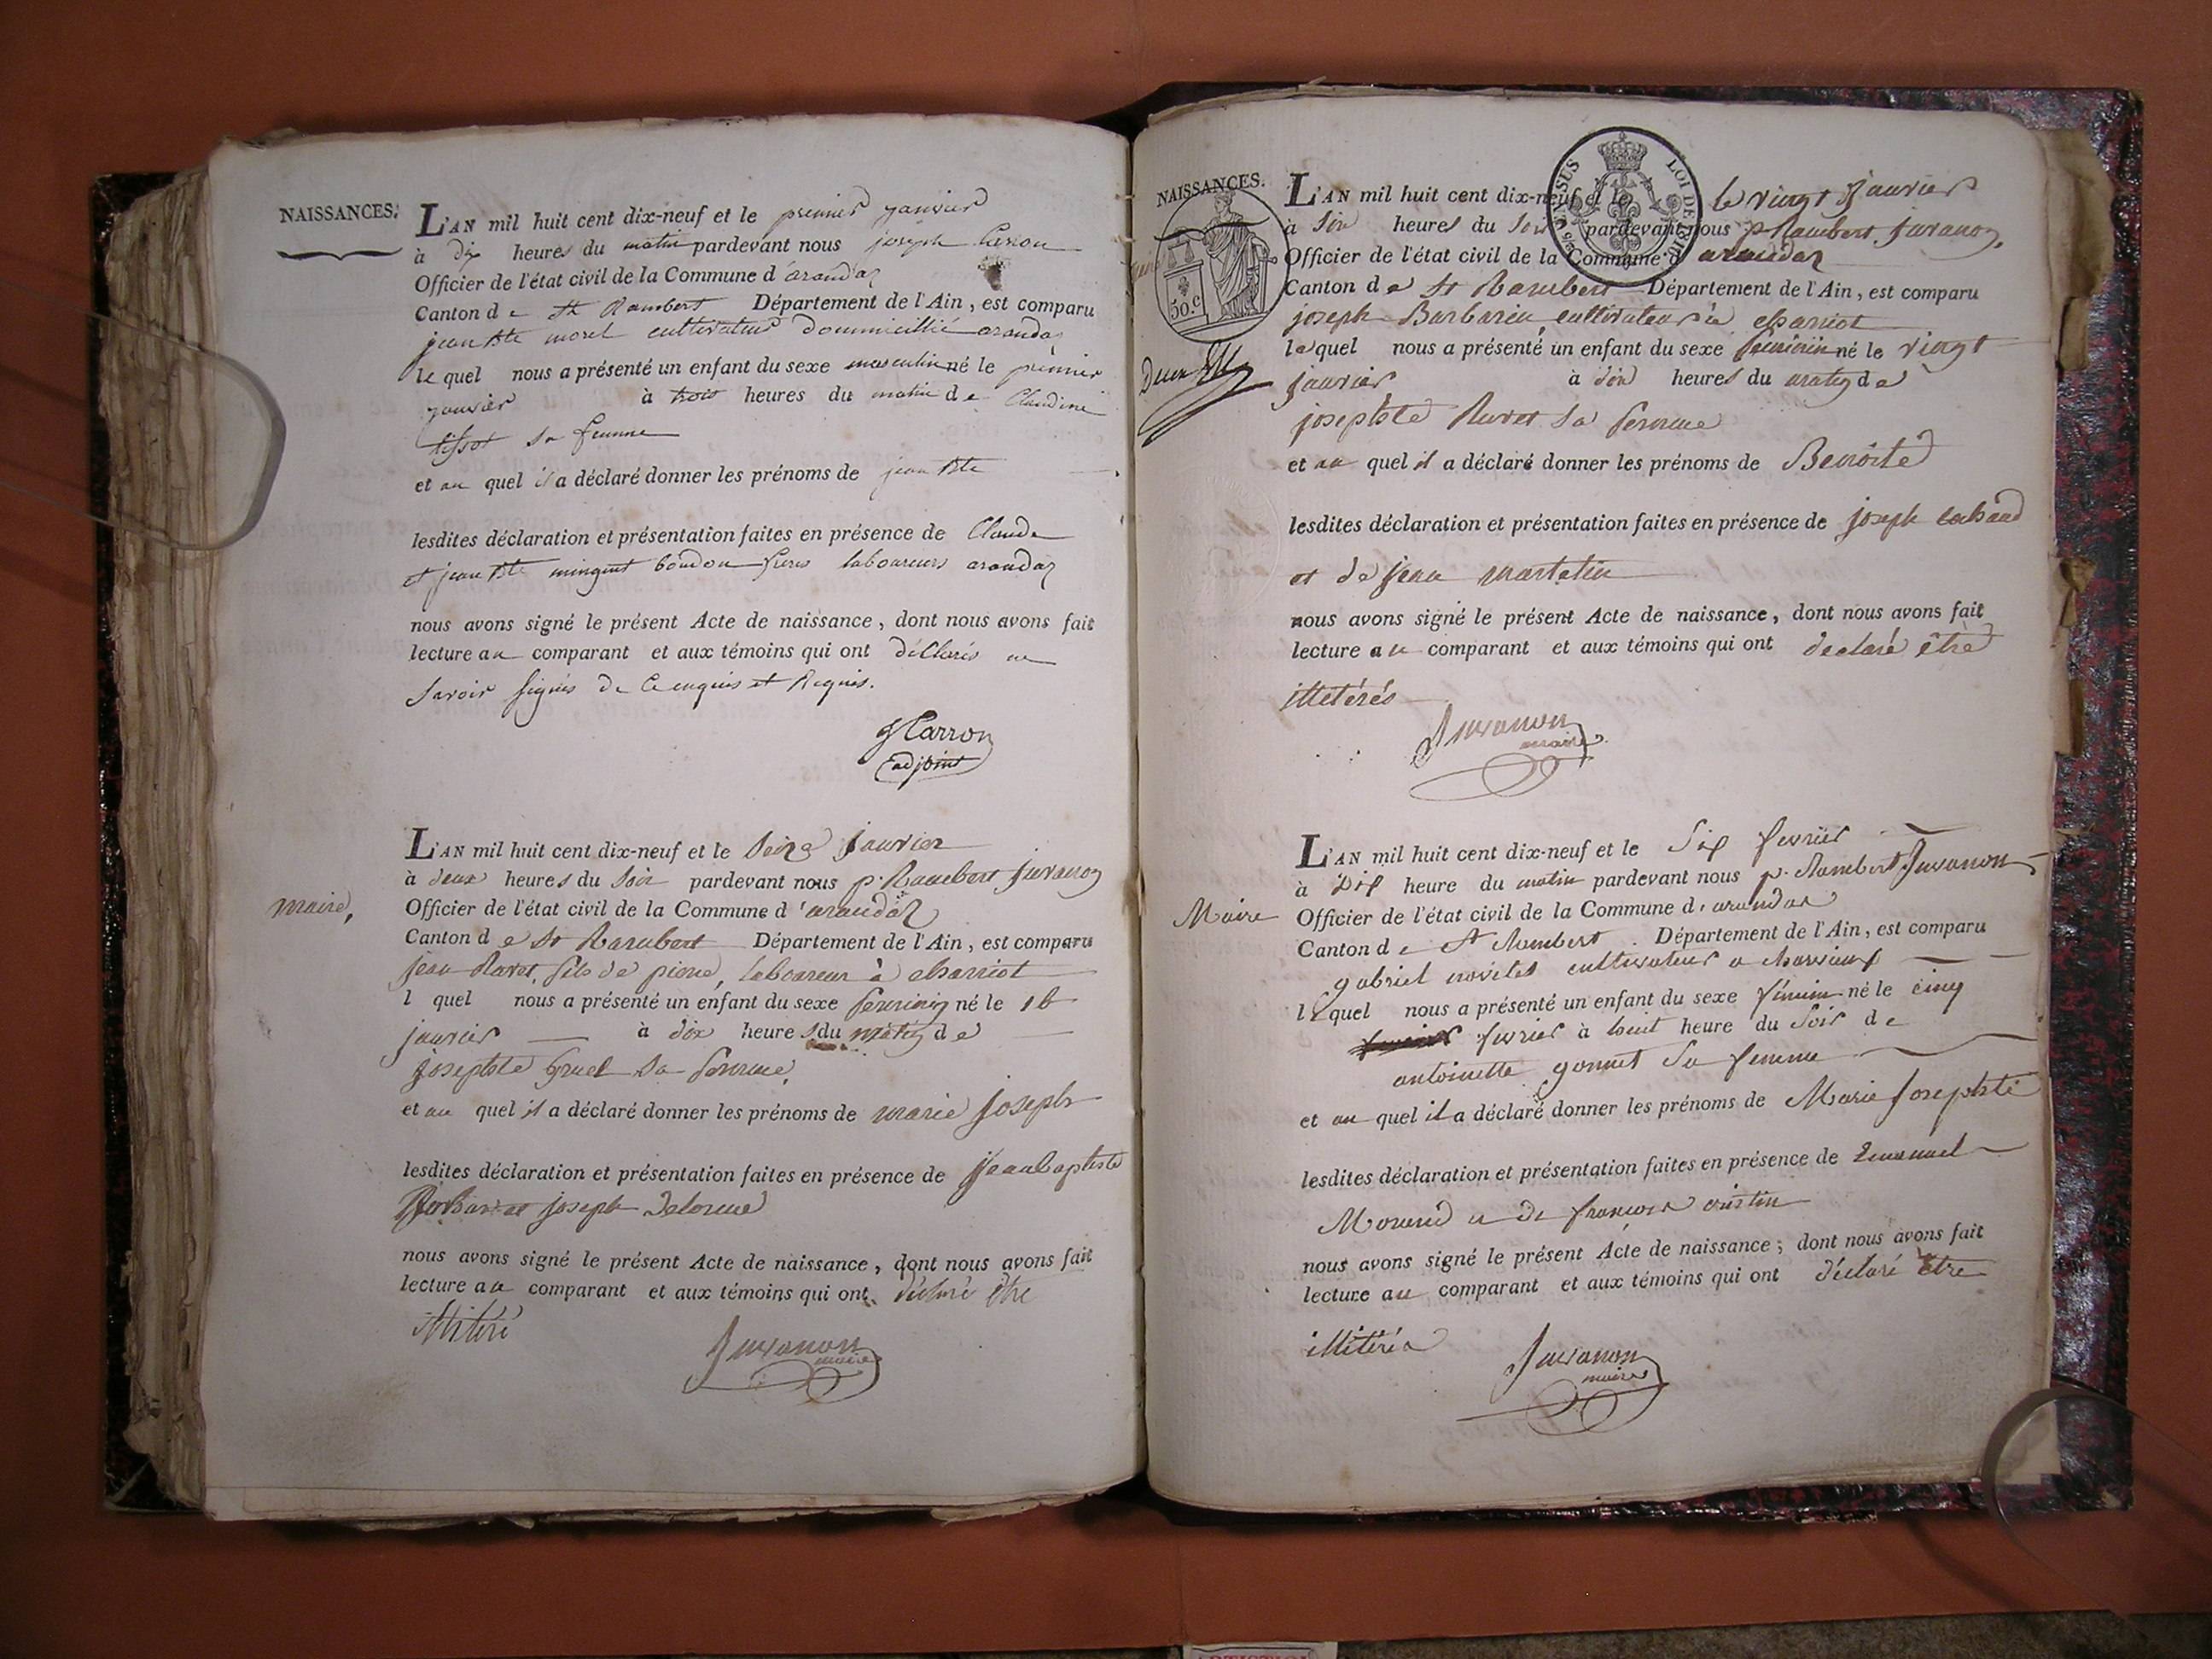 NAISSANCES.
L'AN mil huit cent dix-neuf et le premier janvier
à dix heures du matin pardevant nous joseph Carron
Officier de l'état civil de la Commune d'arandaz
Canton de St Rambert Département de l'Ain, est comparu
jean Bte morel cultivateur dommicillié arandaz
le quel nous a présenté un enfant du sexe masculin né le premier
janvier à trois heures du matin de Claudine
tissot sa femme
et au quel il a déclaré donner les prénoms de jean Bte
lesdites déclaration et présentation faites en présence de Claude
et jean Bte mingeut boudon freres laboureurs arandaz
nous avons signé le présent Acte de naissance, dont nous avons fait
lecture au comparant et aux témoins qui ont déclarés ne
savoir signés de ce enquis et Requis.
J Carron
adjoint
L'AN mil huit cent dix-neuf et le seize janvier
à deux heures du soir pardevant nous p. Rambert Juvanon
maire,
Officier de l'état civil de la Commune d'arandaz
Canton de St Rambert Département de l'Ain, est comparu
jean Ravet, fils de pierre, laboureur à charriot
l quel nous a présenté un enfant du sexe feminin né le 16
janvier à dix heures du matin de
josephte gruel sa femme,
et au quel il a déclaré donner les prénoms de marie joseph
lesdites déclaration et présentation faites en présence de jeanbaptiste
et joseph Delorme
nous avons signé le présent Acte de naissance, dont nous avons fait
lecture au comparant et aux témoins qui ont déclaré être
illitéré
Juvanon
maire
NAISSANCES.
L'AN mil huit cent dix-neuf et le le vingt janvier
à six heures du soir pardevant nous p Rambert Juvanon,
Officier de l'état civil de la Commune d arandaz
Canton de St Rambert Département de l'Ain, est comparu
50.c
LOI DE 1816
joseph Barbarin cultivateur à charriot
lequel nous a présenté un enfant du sexe feminin né le vingt
janvier à six heures du matin de
josephte Ravet sa femme
et au quel il a déclaré donner les prénoms de Benoite
lesdites déclaration et présentation faites en présence de joseph
et de jean martelin
nous avons signé le présent Acte de naissance, dont nous avons fait
lecture au comparant et aux témoins qui ont declaré être
illetérés
Juvanon
maire
L'AN mil huit cent dix-neuf et le six fevrier
à dix heure du matin pardevant nous p. Rambert Juvanon
Maire
Officier de l'état civil de la Commune d'arandas
Canton de St Rambert Département de l'Ain, est comparu
gabriel cultivateur a
lequel nous a présenté un enfant du sexe féminin né le cinq
fevrier à huit heure du soir de
antoinette gonnet sa femme
et au quel il a déclaré donner les prénoms de Marie Josephte
lesdites déclaration et présentation faites en présence de Emanuel
Morand et de françois
nous avons signé le présent Acte de naissance, dont nous avons fait
lecture au comparant et aux témoins qui ont déclaré être
illitérés
Juvanon
maire